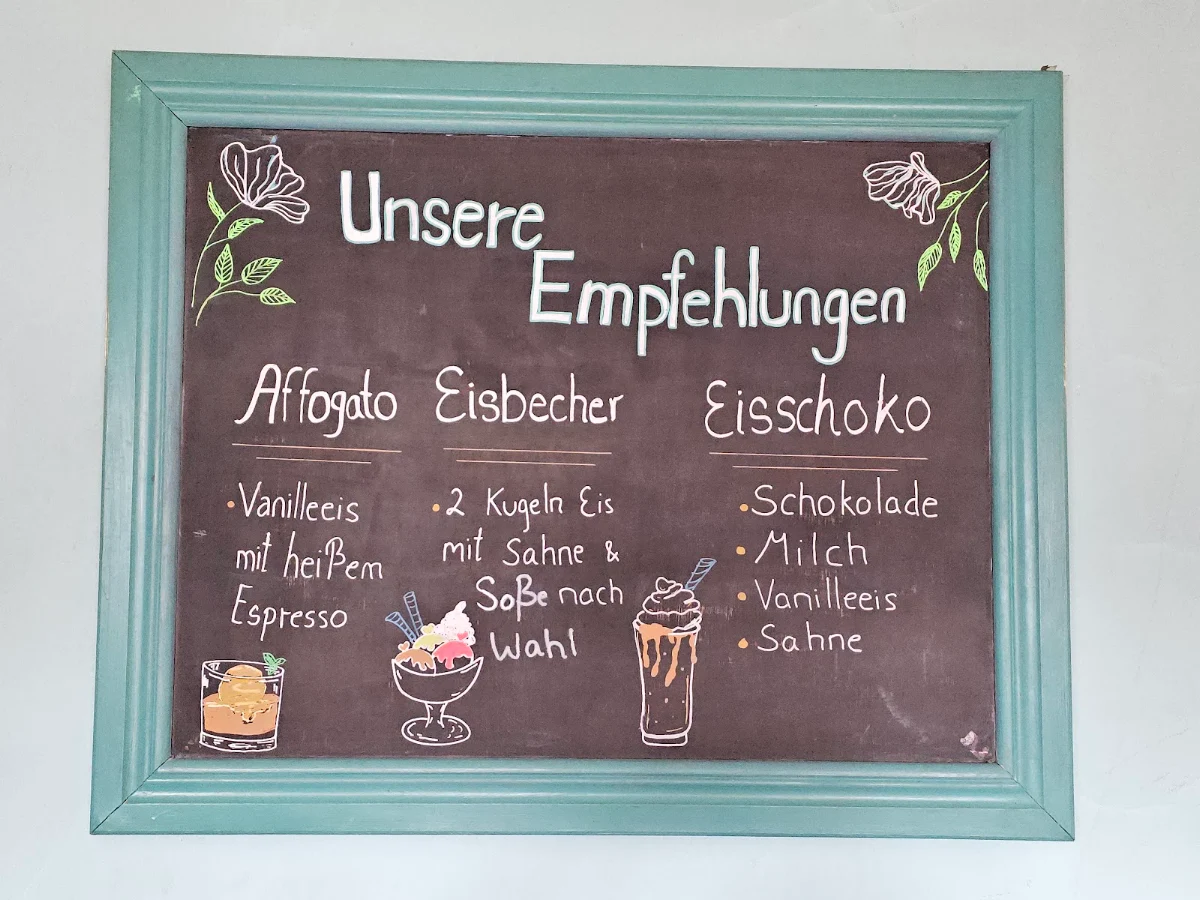 Unsere
Empfehlungen
Affogato
• Vanilleeis
mit heißem
Espresso
Eisbecher
• 2 Kugeln Eis
mit Sahne &
Soße nach
Wahl
Eisschoko
• Schokolade
• Milch
• Vanilleeis
• Sahne